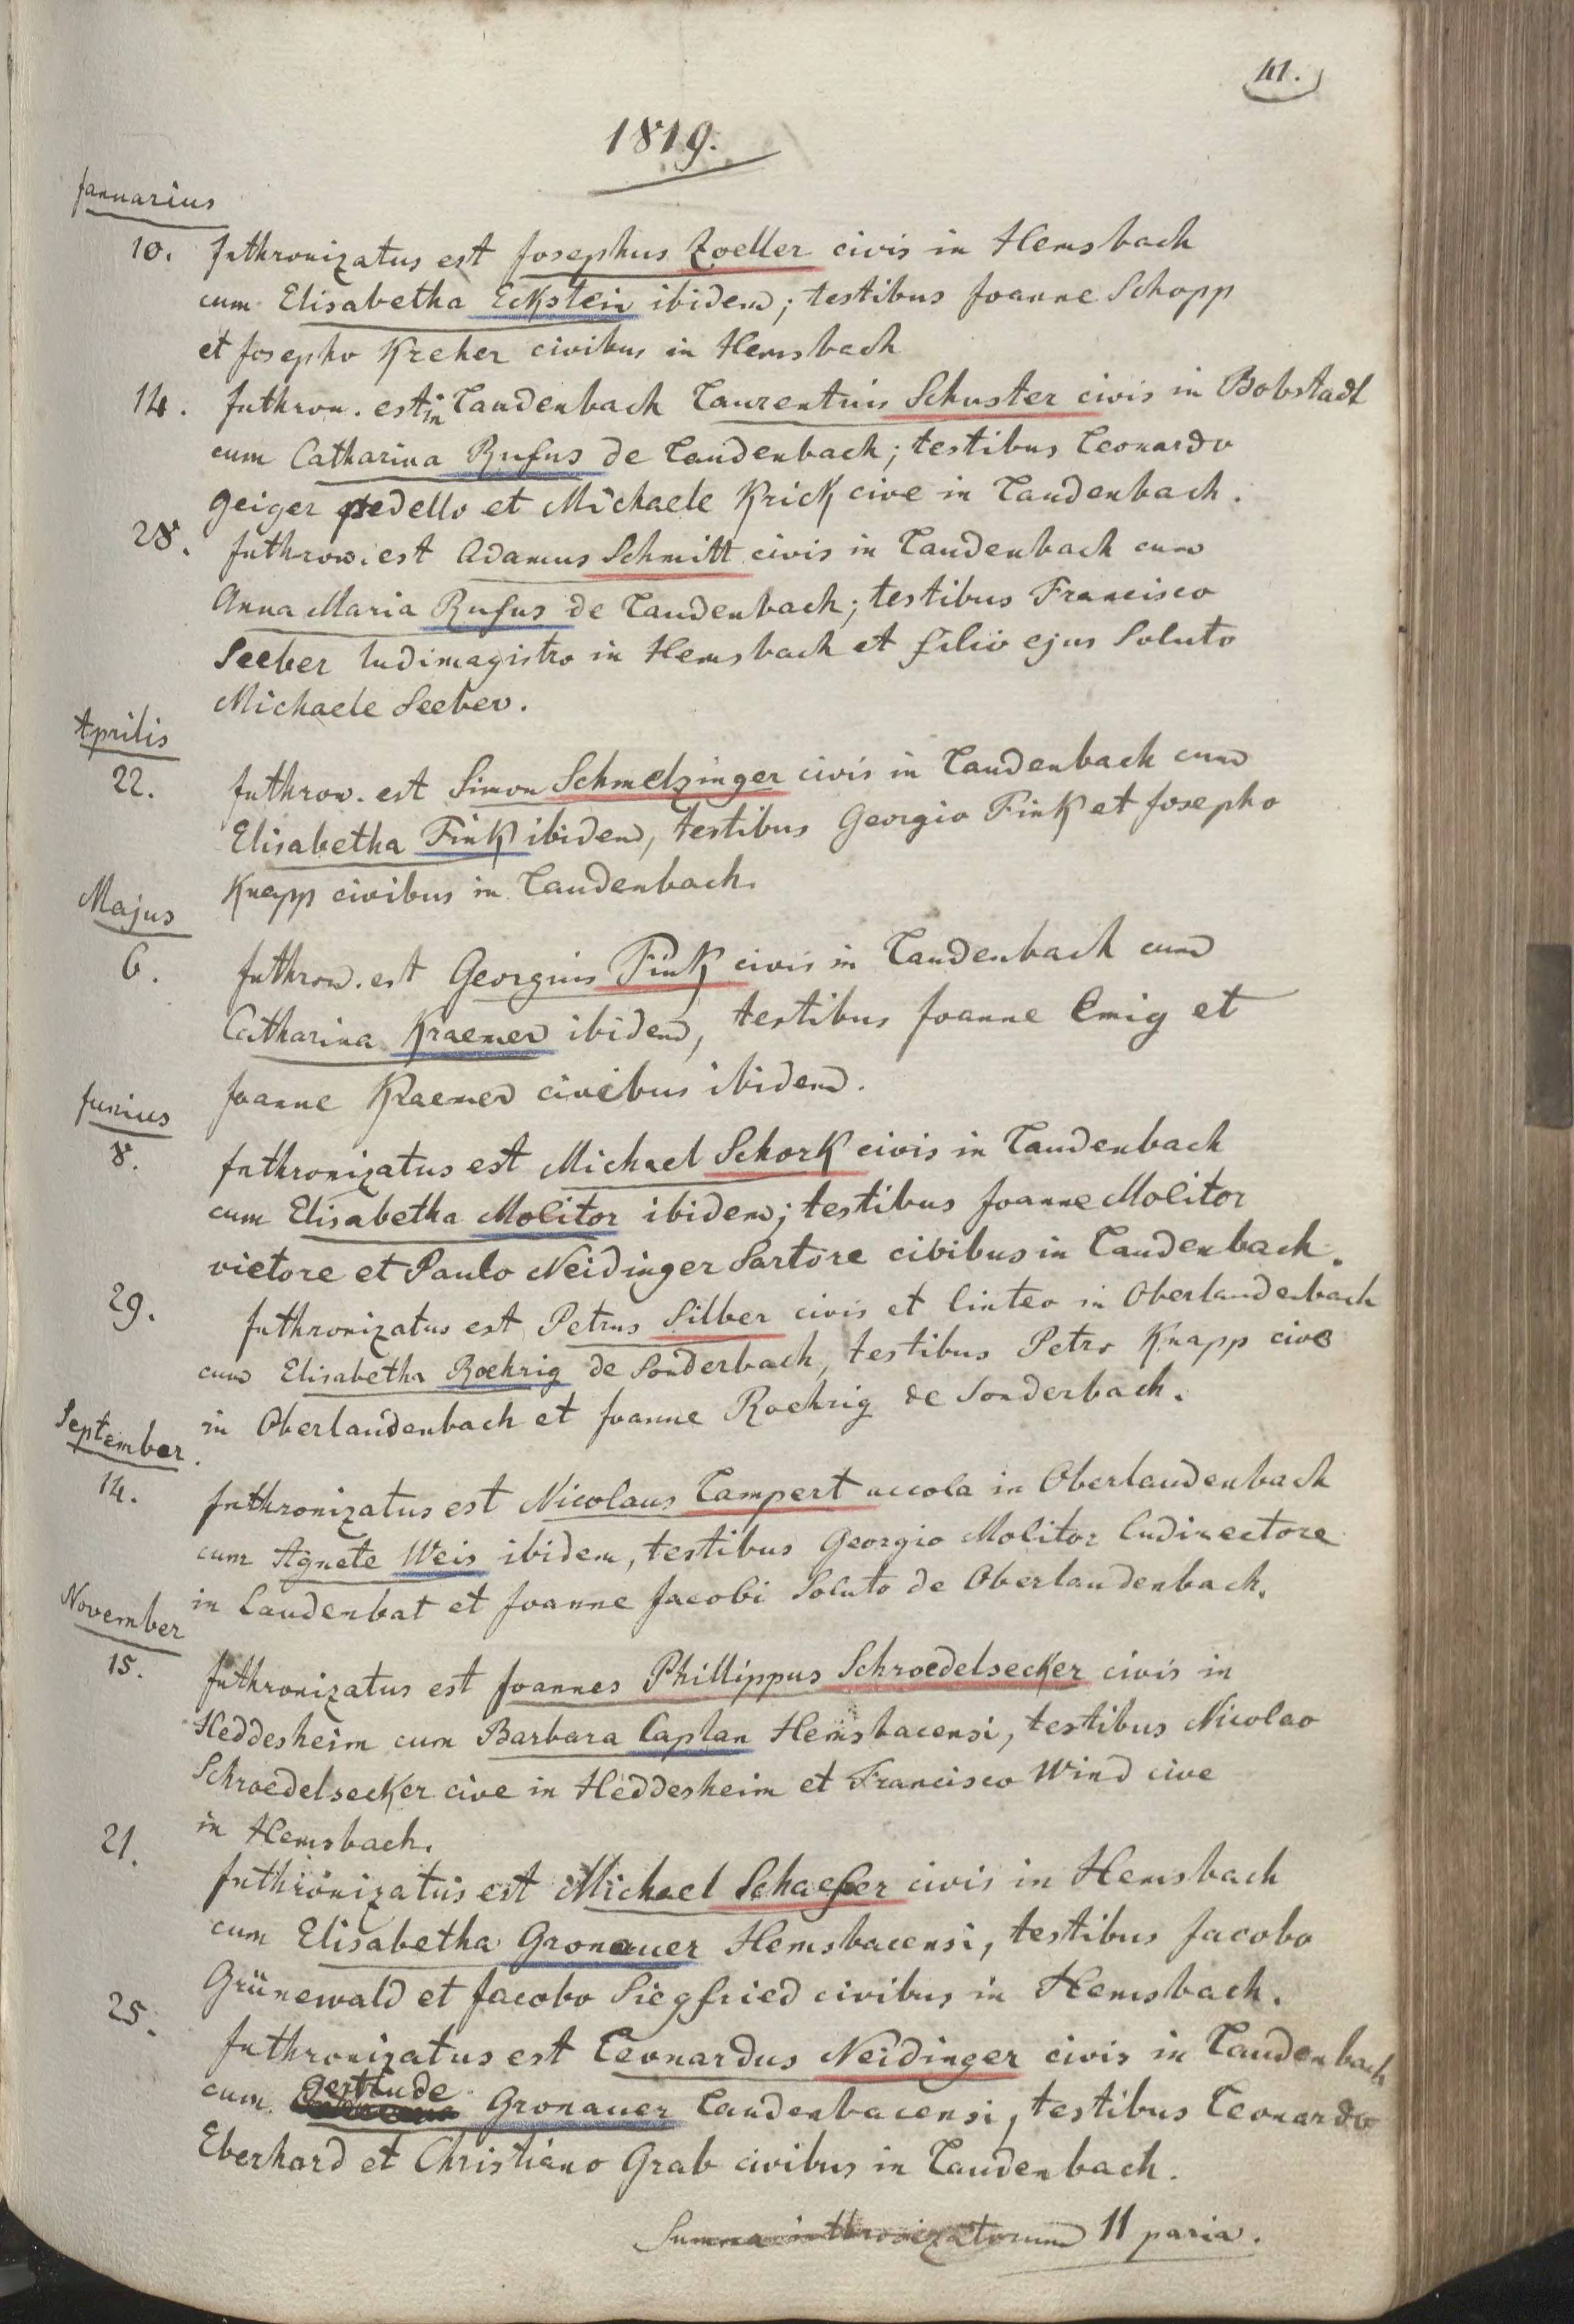 41.
1819.
Januarius
10. Inthronizatus est Josephus Zoeller civis in Hemsbach
cum Elisabetha Eckstein ibidem; testibus Joanne Schopp
et Josepho Kreher civibus in Hemsbach
14. Inthron. est in Laudenbach Laurentius Schuster civis in Bobstadt
cum Catharina Rufus de Laudenbach; testibus Leonardo
Geiger pedello et Michaele Krick cive in Laudenbach.
28. Inthron. est Adamus Schmitt civis in Laudenbach cum
Anna Maria Rufus de Laudenbach; testibus Francisco
Seeber ludimagistro in Hemsbach et filio ejus Soluto
Michaele Seeber.
Aprilis
22. Inthron. est Simon Schmelzinger civis in Laudenbach cum
Elisabetha Fink ibidem, testibus Georgio Fink et Josepho
Knapp civibus in Laudenbach.
Majus
6. Inthron. est Georgius Fink civis in Laudenbach cum
Catharina Kraemer ibidem, testibus Joanne Emig et
Joanne Kraemer civibus ibidem.
Junius
8. Inthronizatus est Michael Schork civis in Laudenbach
cum Elisabetha Molitor ibidem; testibus Joanne Molitor
vietore et Paulo Neidinger Sartore cibibus in Laudenbach.
29. Inthronizatus est Petrus Silber civis et linteo in Oberlaudenbach
cum Elisabetha Roehrig de Sonderbach, testibus Petro Knapp cive
in Oberlaudenbach et Joanne Roehrig de Sonderbach.
September.
14. Inthronizatus est Nicolaus Lampert accola in Oberlaudenbach
cum Agnete Weis ibidem, testibus Georgio Molitor ludirectore
in Laudenbat et Joanne Jacobi Soluto de Oberlaudenbach.
November
15. Inthronizatus est Joannes Phillippus Schroedelsecker civis in
Heddesheim cum Barbara Caplan Hemsbacensi, testibus Nicolao
Schroedelsecker cive in Heddesheim et Francisco Wind cive
in Hemsbach.
21. Inthronizatus est Michael Schaefer civis in Hemsbach
cum Elisabetha Gronauer Hemsbacensi, testibus Jacobo
Grünewald et Jacobo Siegfried civibus in Hemsbach.
25. Inthronizatus est Leonardus Neidinger civis in Laudenbach
cum Gertrude Gronauer Laudenbacensi, testibus Leonardo
Eberhard et Christiano Grab civibus in Laudenbach.
Summa inthronizatorum 11 paria.